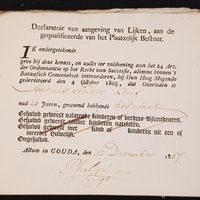 Declaratoir van aangeving van Lijken, aan de
gequalificeerde van het Plaatzelijk Bestuur.
IK ondergetekende
geve bij deze kennis, en zulks ter voldoening aan het 24 Art.
der Ordonnantie op het Recht van Successie, alomme binnen 't
Bataafsch Gemeenebest intevorderen, bij Hun Hoog Mogende
gearresteerd den 4 October 1805, dat Overleden is
oud 22 Jaren, gewoond hebbende
Gehuwd geweest nalatende kinderen of verdere descendenten.
Gehuwd geweest met kind of kinderen uit een of
meerder Huwelijk.
Ongehuwd.
Actum in GOUDA, den December 1807